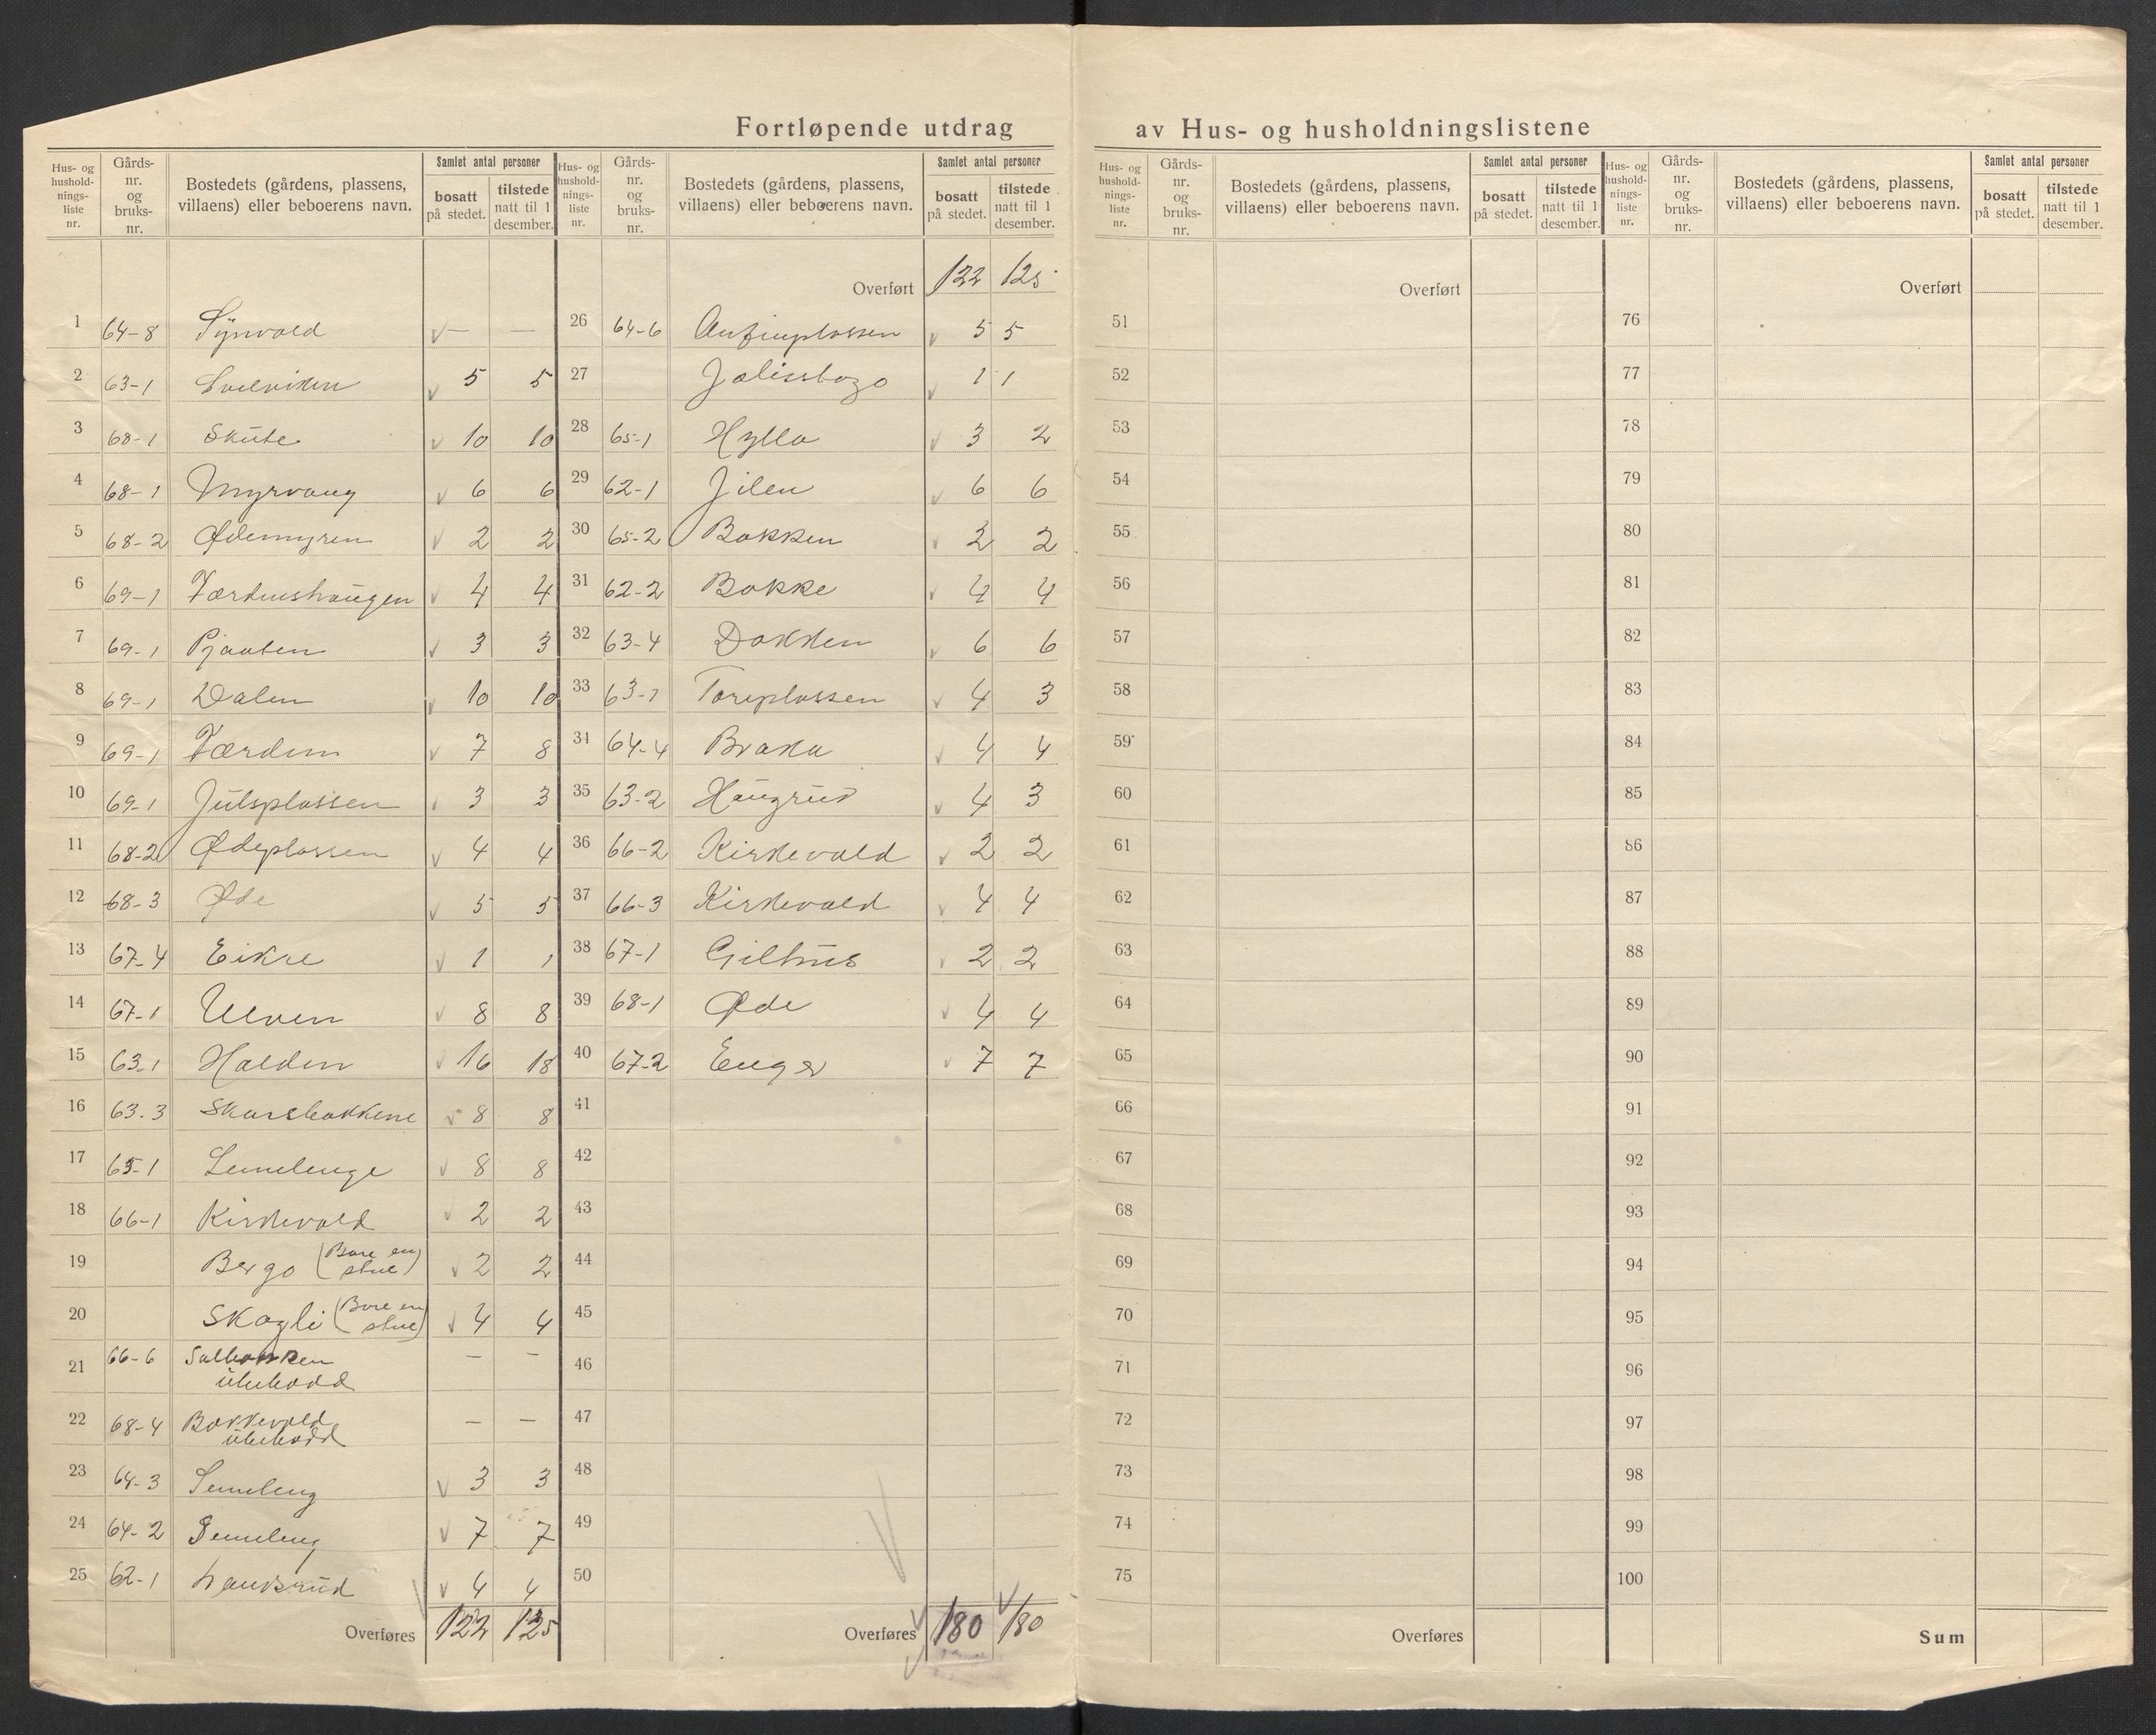 Fortløpende utdrag av Hus- og husholdningslistene
Hus- og husholdnings-liste nr. Gårds-nr. og bruks-nr. Bostedets (gårdens, plassens, villaens) eller beboerens navn. Samlet antal personer bosatt på stedet. tilstede natt til 1 desember.
1 64-8 Synvold – –
2 63-1 5 5
3 68-1 Skute 10 10
4 68-1 Myrvang 6 6
5 68-2 Ødemyren 2 2
6 69-1 Værdenshaugen 4 4
7 69-1 Pjaaten 3 3
8 69-1 Dalen 10 10
9 69-1 Værdem 7 8
10 69-1 Julsplassen 3 3
11 68-2 Ødeplassen 4 4
12 68-3 Øde 5 5
13 67-4 Eikre 1 1
14 67-1 Ulven 8 8
15 63-1 Halden 16 18
16 63-3 Skarsbakkene 8 8
17 65-1 Semelenge 8 8
18 66-1 Kirkevold 2 2
19 Bergo (Bare en stue) 2 2
20 Skogli (Bare en stue) 4 4
21 66-6 Solbakken – –
ubebodd
22 68-4 Bakkevold – –
ubebodd
23 64-3 Semeleng 3 3
24 64-2 Semeleng 7 7
25 62-1 4 4
Overføres 122 125
Hus- og husholdnings-liste nr. Gårds-nr. og bruks-nr. Bostedets (gårdens, plassens, villaens) eller beboerens navn. Samlet antal personer bosatt på stedet. tilstede natt til 1 desember.
Overført 122 125
26 64-6 Anfinplassen 5 5
27 1 1
28 65-1 Hylla 3 2
29 62-1 Jilen 6 6
30 65-2 Bakken 2 2
31 62-2 Bakke 4 4
32 63-4 Dokken 6 6
33 63-1 Toreplassen 4 3
34 64-4 Braka 4 4
35 63-2 Haugrud 4 3
36 66-2 Kirkevold 2 2
37 66-3 Kirkevold 4 4
38 67-1 Gilhus 2 2
39 68-1 Øde 4 4
40 67-2 Enger 7 7
41
42
43
44
45
46
47
48
49
50
Overføres 180 180
Hus- og husholdnings-liste nr. Gårds-nr. og bruks-nr. Bostedets (gårdens, plassens, villaens) eller beboerens navn. Samlet antal personer bosatt på stedet. tilstede natt til 1 desember.
Overført
51
52
53
54
55
56
57
58
59
60
61
62
63
64
65
66
67
68
69
70
71
72
73
74
75
Overføres
Hus- og husholdnings-liste nr. Gårds-nr. og bruks-nr. Bostedets (gårdens, plassens, villaens) eller beboerens navn. Samlet antal personer bosatt på stedet. tilstede natt til 1 desember.
Overført
76
77
78
79
80
81
82
83
84
85
86
87
88
89
90
91
92
93
94
95
96
97
98
99
100
Sum